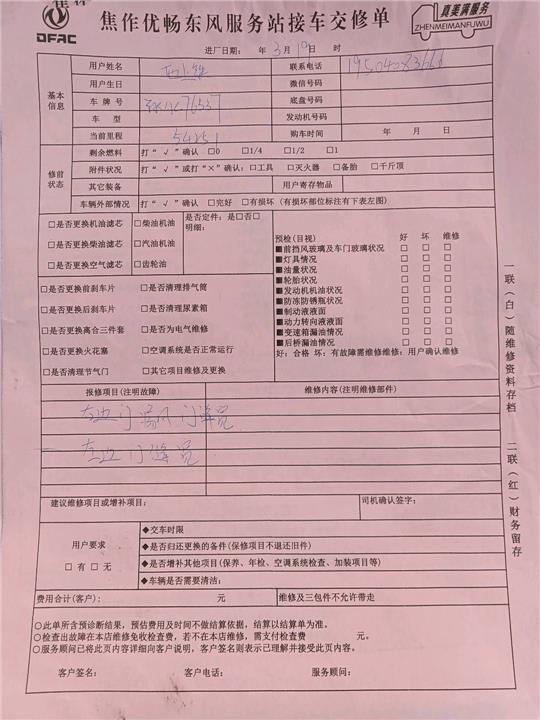 焦作优畅东风服务站接车交修单
DFAC
真美满服务
ZHENMEIMANFUWU
进厂日期： 年 3月19日 时
基本信息
用户姓名 联系电话
用户生日 微信号码
车牌号 底盘号码
车型 发动机号码
当前里程 54251 购车时间 年 月 日
修前状态
剩余燃料 打“√”确认 □0 □1/4 □1/2 □1
附件状况 打“√”或打“×”确认：□工具 □灭火器 □备胎 □千斤顶
其它装备 用户寄存物品
车辆外部情况 打“√”确认 □完好 □有损坏（有损坏部位标注有下表左图）
□是否更换机油滤芯 □柴油机油 是否定件：是□否□
明细：
□是否更换柴油滤芯 □汽油机油
□是否更换空气滤芯 □齿轮油
□是否更换前刹车片 □是否清理排气筒
□是否更换后刹车片 □是否清理尿素箱
□是否更换离合三件套 □是否为电气维修
□是否更换火花塞 □空调系统是否正常运行
□是否清理节气门 □其它项目维修及更换
预检(目视) 好 坏 维修
■前挡风玻璃及车门玻璃状况 □ □ □
■灯具情况 □ □ □
■油量状况 □ □ □
■轮胎状况 □ □ □
■发动机机油状况 □ □ □
■防冻防锈瓶状况 □ □ □
■制动液液面 □ □ □
■动力转向液液面 □ □ □
■变速箱漏油情况 □ □ □
■后桥漏油情况 □ □ □
好：合格 坏：有故障需维修维修：用户确认维修
报修项目(注明故障) 维修内容(注明维修部件)
左边门
左边门
建议维修项目或增补项目： 司机确认签字：
用户要求
□有□无
◆交车时限
◆是否归还更换的备件(保修项目不退还旧件)
◆是否增补其他项目(保养、年检、空调系统检查、加装项目等)
◆车辆是否需要清洁：
费用合计(客户)： 元 维修及三包件不允许带走
○此单所含预诊断结果，预估费用及时间不做结算依据，结算以结算单为准。
○检查出故障在本店维修免收检查费，若不在本店维修，需支付检查费 元。
○服务顾问已将此页内容详细向客户说明，客户签名则表示已理解并接受此页内容。
客户签名： 客户电话： 服务顾问：
一联（白）随维修资料存档 二联（红）财务留存